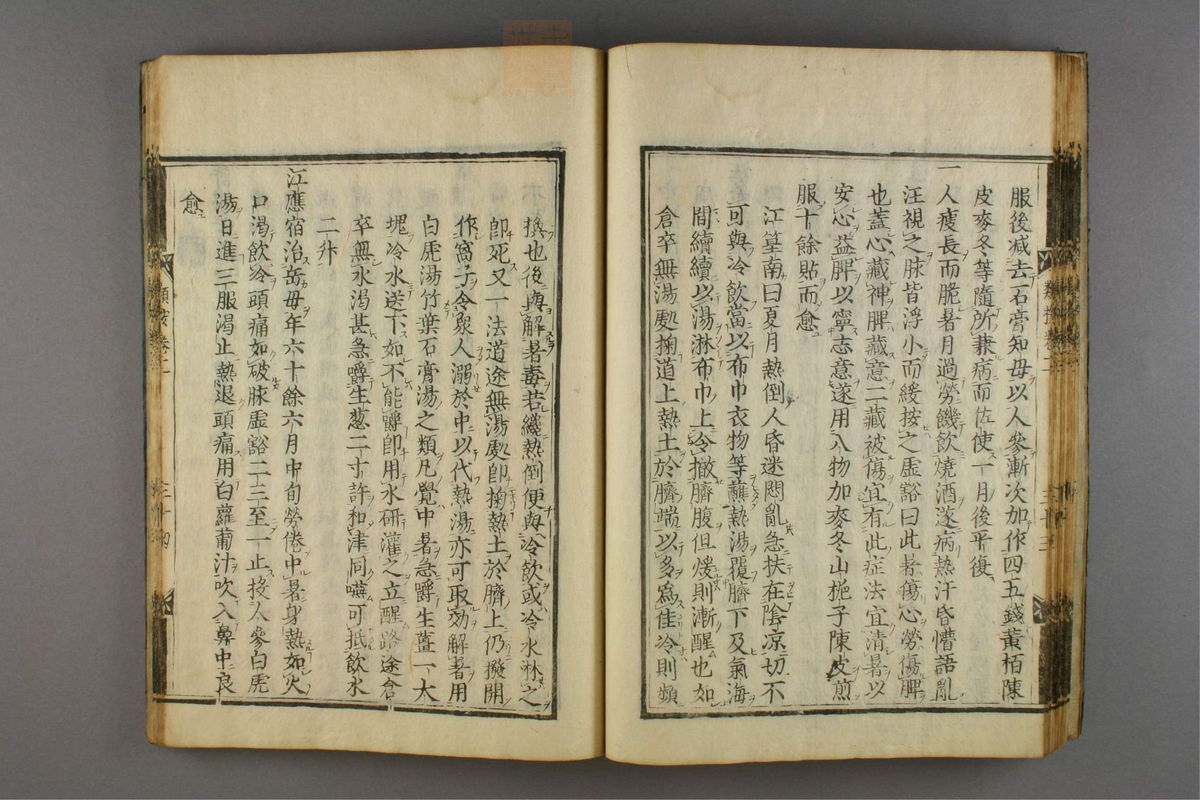 服後減去石膏知母以人參漸次加作四五錢黃栢陳
皮麥冬等隨所兼病而佐使一月後平復
一人瘦長而脆暑月過勞饑飲燒酒遂病熱汗昏懵語亂
汪視之脉皆浮小而緩按之虛豁曰此暑傷心勞傷脾
也蓋心藏神脾藏意二藏被傷宜有此症法宜清暑以
安心益脾以寧志意遂用八物加麥冬山梔子陳皮煎
服十餘貼而愈
江篁南曰夏月熱倒人昏迷悶亂急扶在陰凉切不
可與冷飲當以布巾衣物等蘸熱湯覆臍下及氣海
間續續以湯淋布巾上令撤臍腹但煖則漸醒也如
倉卒無湯處掬道上熱土於臍端以多爲佳冷則頻
換也後與解暑毒若纔熱倒便與冷飲或冷水淋之
卽死又一法道途無湯處卽掬熱土於臍上仍撥開
作窩子令衆人溺於中以代熱湯亦可取効解暑用
白虎湯竹葉石膏湯之類凡覺中暑急嚼生薑一大
塊冷水送下如不能嚼卽用水研灌之立醒路途倉
卒無水渴甚急嚼生葱二寸許和津同嚥可抵飲水
二升
江應宿治岳母年六十餘六月中旬勞倦中暑身熱如火
口渴飲冷頭痛如破脉虛豁二三至一止投人參白虎
湯日進三服渴止熱退頭痛用白蘿蔔汁吹入鼻中良
愈
類按卷二
三十四